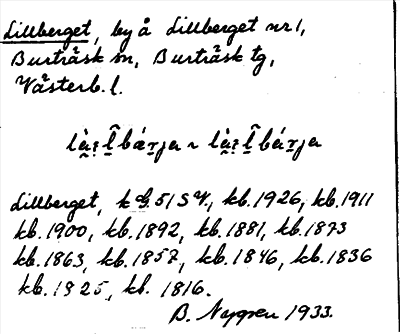 Lillberget, by å Lillberget nr 1,
Burträsk sn, Burträsk tg,
Västerb. l.
Lillberget, 51 SV, kb. 1926, kb. 1911
kb. 1900, kb. 1892, kb. 1881, kb. 1873
kb. 1863, kb. 1857, kb. 1846, kb. 1836
kb. 1825, kb. 1816.
B. Nygren 1933.